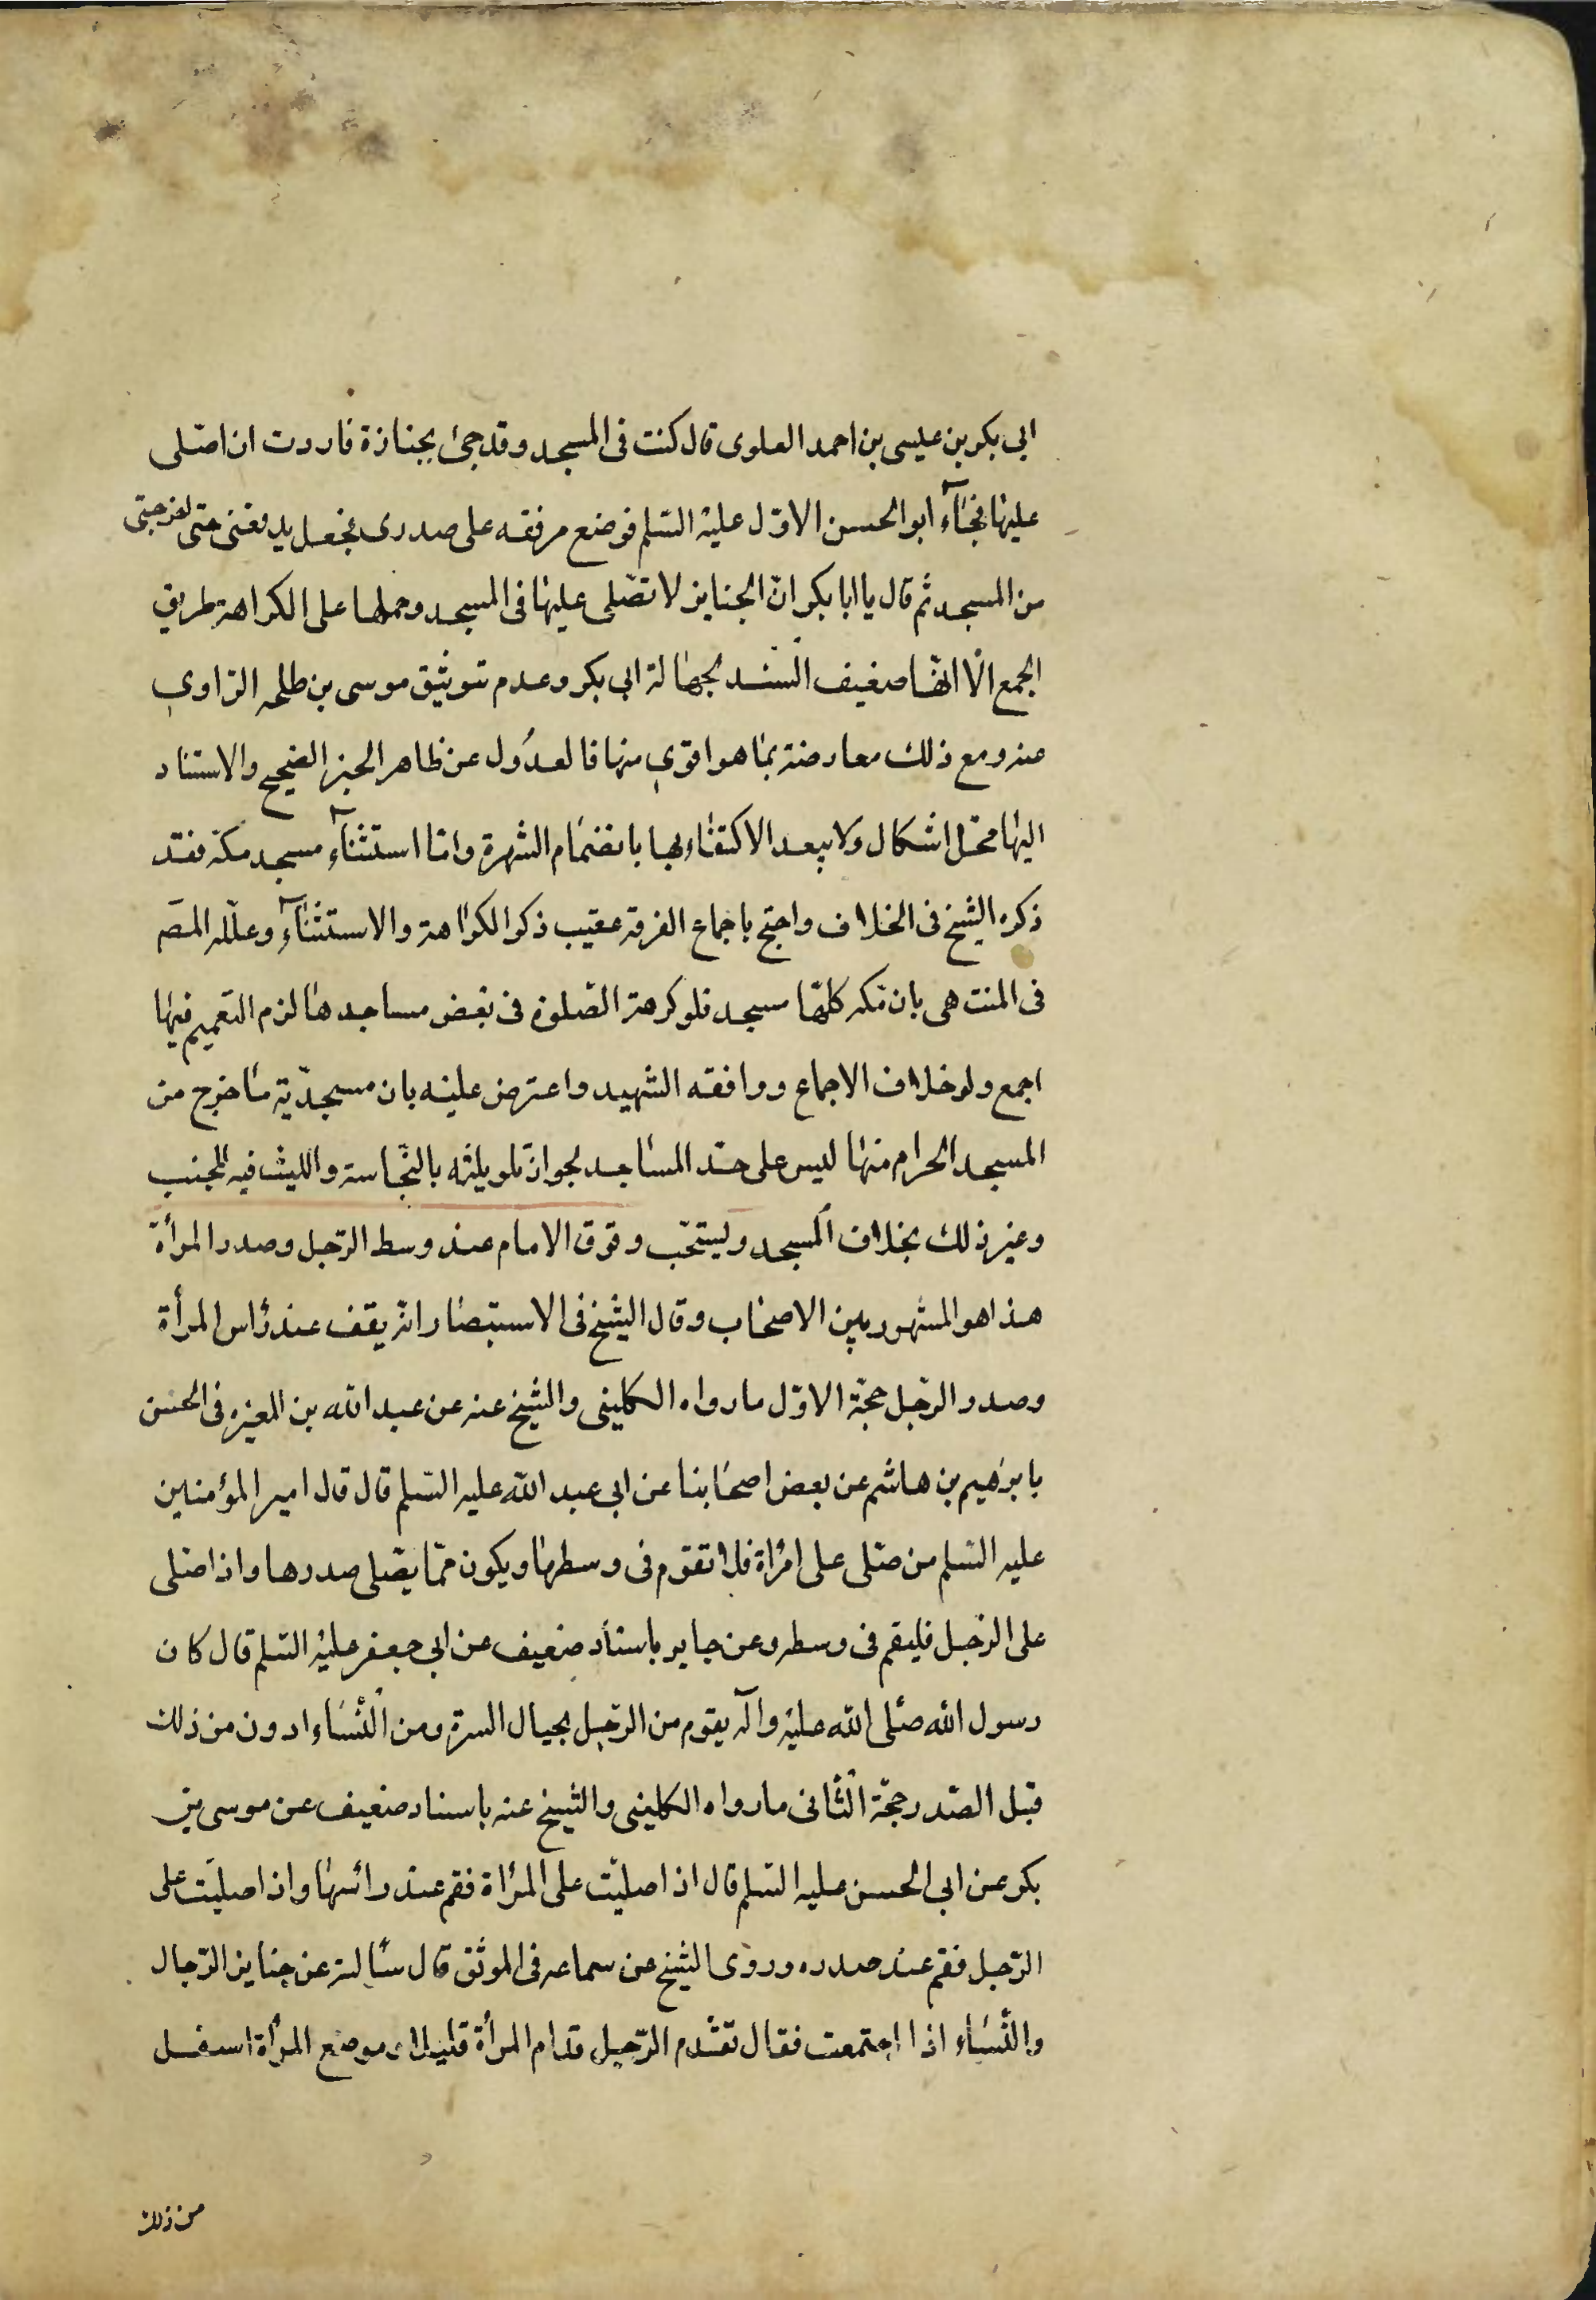 ابى بكر بن عليسى بن احمد العلوى قال كنت فى المسجد وقد جئ بجنازة فاردت ان اصلى
عليها فجاء ابو الحسن الاوّل عليه السّلم فوضع مرفقه على صدرى فجعل يدفعنى حتى اخرجنى
من المسجد ثم قال يا ابا بكر انّ الجنايز لا تصلى عليها فى المسجد وحملها على الكراهة طريق
الجمع الّا انّها ضعيف السند لجهالة ابى بكر وعدم توثيق موسى بن طلحه الرّاوى
عنه ومع ذلك معارضة بما هو اقوى منها فالعدُول عن ظاهر الخبر الصّحيح والاستناد
اليها محلّ اشكال ولا يبعد الاكتفاء بها بانضمام الشهرة وامّا استثناء مسجد مكة فقد
ذكره الشيخ فى الخلاف واحتج باجماع الفرقة عقيب ذكر الكراهة والاستثناء وعلّله المصَ
فى المنتهى بان مكه كلّها مسجد فلو كرهة الصّلوة فى بعض مساجدها لزم التعميم فيها
اجمع ولو خلاف الاجماع ووافقه الشهيد واعترض عليه بان مسجديّة ما خرج من
المسجد الحرام منها ليس على حدّ المساجد لجواز تلويثه بالنّجاسة واللبث فيه للجنب
وغير ذلك بخلاف المسجد وليستحّب وقوف الامام عند وسط الرّجل وصدر المرأة
هذا هو المشهور بين الاصحاب وقال الشيخ فى الاستبصار انّه يقف عند رأس المرأة
وصدر الرّجل حجّة الاوّل ما رواه الكلينى والشيخ عنه عن عبد الله بن المغيره فى الحسن
بابرٰهيم بن هاشم عن بعض اصحابنا عن ابى عبد الله عليه السّلم قال قال امير المؤمنين
عليه السّلم من صلّى على امرأة فلا تقوم فى وسطها ويكون ممّا يصّلى صدرها واذا صلى
على الرّجل فليقم فى وسطه وعن جابر باسناد ضعيف عن ابى جعفر عليه السّلم قال كان
رسول الله صلّى الله عليه وآله يقوم من الرّجل بحيال السرة ومن النّساء ادون من ذلك
قبل الصّدر حجّة الثانى ما رواه الكلينى والشيخ عنه باسناد ضعيف عن موسى بن
بكر عن ابى الحسن عليه السّلم قال اذا صليّت على المرأة فقم عند رأسها واذا صليت على
الرّجل فقم عند صدره وروى الشيخ عن سماعه فى الموثق قال سألته عن جنايز الرّجال
والنّساء اذا اجتمعت فقال تقدّم الرّجل قدام المرأة قليلا وموضع المرأة اسفل
من ذلك